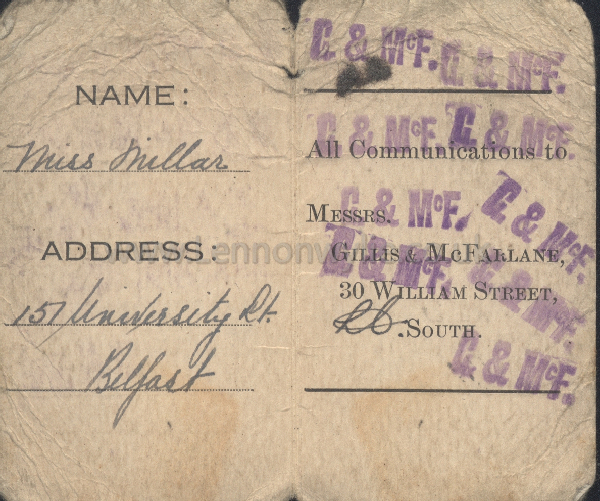 NAME:
Miss Millar
ADDRESS:
151 University Rd.
Belfast
G. & McF. G. & McF.
G. & McF. G. & McF.
All Communications to
G. & McF. G. & McF.
Messrs.
Gillis & McFarlane,
G. & McF. G. & McF.
30 William Street,
South.
G. & McF.